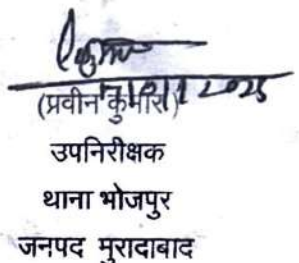 (प्रवीन कुमार)
उपनिरीक्षक
थाना भोजपुर
जनपद मुरादाबाद